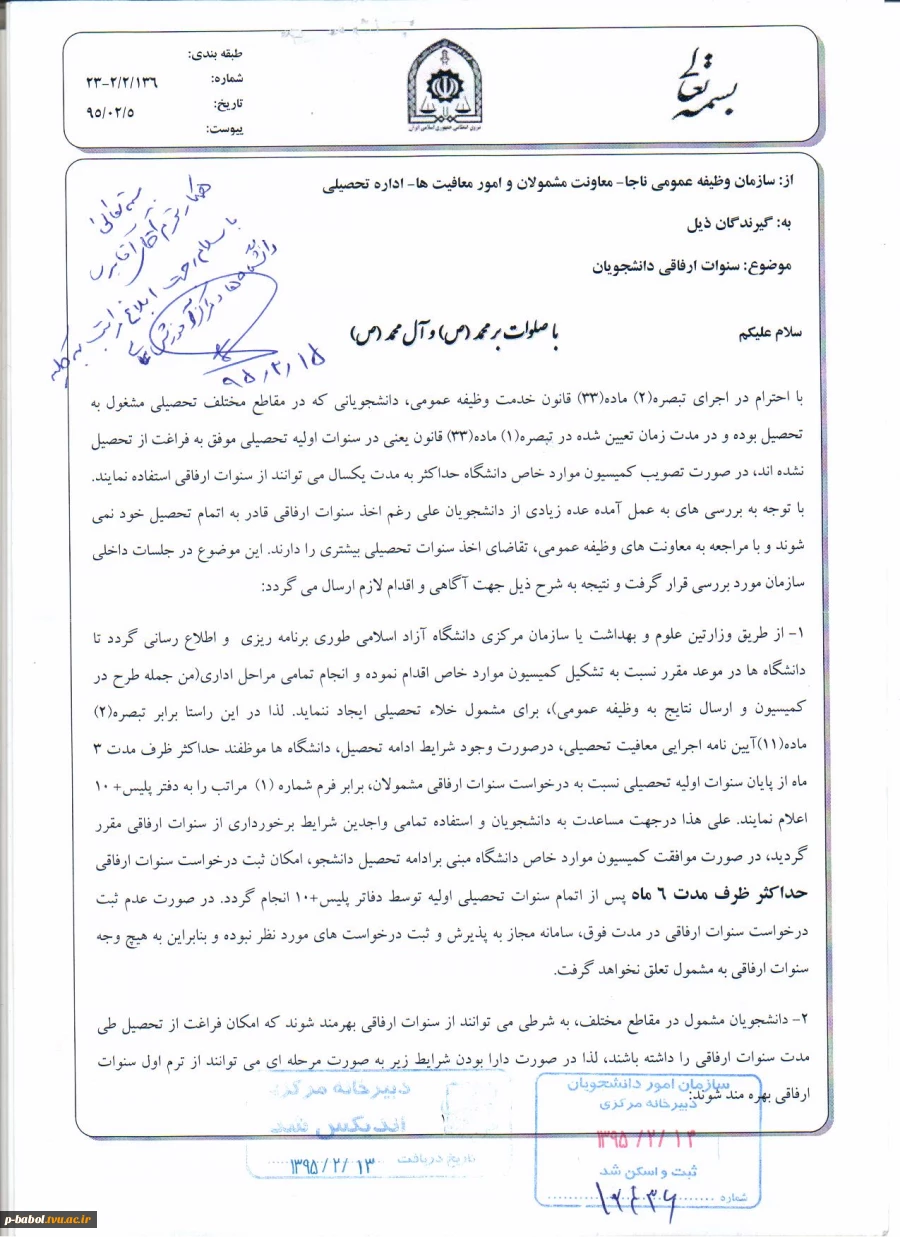 بسمه تعالی
نیروی انتظامی جمهوری اسلامی ایران
طبقه بندی:
شماره: ۲۳-۲/۲/۱۳۶
تاریخ: ۹۵/۰۲/۵
پیوست:
از: سازمان وظیفه عمومی ناجا- معاونت مشمولان و امور معافیت ها- اداره تحصیلی
به: گیرندگان ذیل
موضوع: سنوات ارفاقی دانشجویان
بسمه تعالی
همکار محترم آقای
با سلام جهت ابلاغ مراتب به کلیه
دانشگاه ها و مراکز آموزش عالی
۹۵/۲/۱۵
سلام علیکم
با صلوات بر محمد (ص) و آل محمد (ص)
با احترام در اجرای تبصره(۲) ماده(۳۳) قانون خدمت وظیفه عمومی، دانشجویانی که در مقاطع مختلف تحصیلی مشغول به
تحصیل بوده و در مدت زمان تعیین شده در تبصره(۱) ماده(۳۳) قانون یعنی در سنوات اولیه تحصیلی موفق به فراغت از تحصیل
نشده اند، در صورت تصویب کمیسیون موارد خاص دانشگاه حداکثر به مدت یکسال می توانند از سنوات ارفاقی استفاده نمایند.
با توجه به بررسی های به عمل آمده عده زیادی از دانشجویان علی رغم اخذ سنوات ارفاقی قادر به اتمام تحصیل خود نمی
شوند و با مراجعه به معاونت های وظیفه عمومی، تقاضای اخذ سنوات تحصیلی بیشتری را دارند. این موضوع در جلسات داخلی
سازمان مورد بررسی قرار گرفت و نتیجه به شرح ذیل جهت آگاهی و اقدام لازم ارسال می گردد:
۱- از طریق وزارتین علوم و بهداشت یا سازمان مرکزی دانشگاه آزاد اسلامی طوری برنامه ریزی و اطلاع رسانی گردد تا
دانشگاه ها در موعد مقرر نسبت به تشکیل کمیسیون موارد خاص اقدام نموده و انجام تمامی مراحل اداری(من جمله طرح در
کمیسیون و ارسال نتایج به وظیفه عمومی)، برای مشمول خلاء تحصیلی ایجاد ننماید. لذا در این راستا برابر تبصره(۲)
ماده(۱۱)آیین نامه اجرایی معافیت تحصیلی، درصورت وجود شرایط ادامه تحصیل، دانشگاه ها موظفند حداکثر ظرف مدت ۳
ماه از پایان سنوات اولیه تحصیلی نسبت به درخواست سنوات ارفاقی مشمولان، برابر فرم شماره (۱) مراتب را به دفتر پلیس+۱۰
اعلام نمایند. علی هذا درجهت مساعدت به دانشجویان و استفاده تمامی واجدین شرایط برخورداری از سنوات ارفاقی مقرر
گردید، در صورت موافقت کمیسیون موارد خاص دانشگاه مبنی برادامه تحصیل دانشجو، امکان ثبت درخواست سنوات ارفاقی
حداکثر ظرف مدت ۶ ماه پس از اتمام سنوات تحصیلی اولیه توسط دفاتر پلیس+۱۰ انجام گردد. در صورت عدم ثبت
درخواست سنوات ارفاقی در مدت فوق، سامانه مجاز به پذیرش و ثبت درخواست های مورد نظر نبوده و بنابراین به هیچ وجه
سنوات ارفاقی به مشمول تعلق نخواهد گرفت.
۲- دانشجویان مشمول در مقاطع مختلف، به شرطی می توانند از سنوات ارفاقی بهرمند شوند که امکان فراغت از تحصیل طی
مدت سنوات ارفاقی را داشته باشند، لذا در صورت دارا بودن شرایط زیر به صورت مرحله ای می توانند از ترم اول سنوات
ارفاقی بهره مند شوند:
۱
سازمان امور دانشجویان
دبیرخانه مرکزی
۱۳۹۵/۲/۱۴
ثبت و اسکن شد
شماره
دبیرخانه مرکزی
اندیکس شد
تاریخ دریافت ۱۳۹۵/۲/۱۳
p-babol.tvu.ac.ir